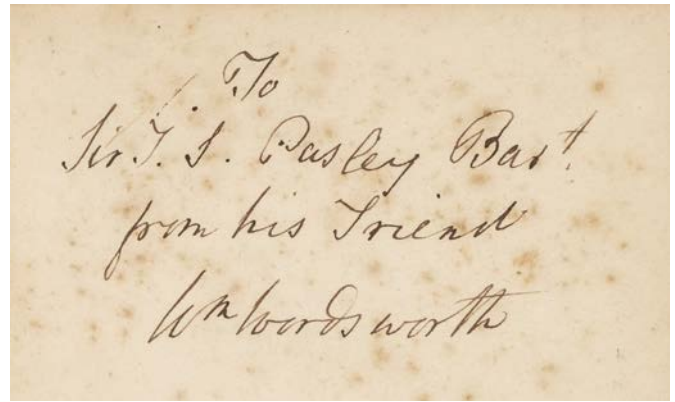 To
Sir T. S. Pasley Bart.
from his Friend
Wm Wordsworth